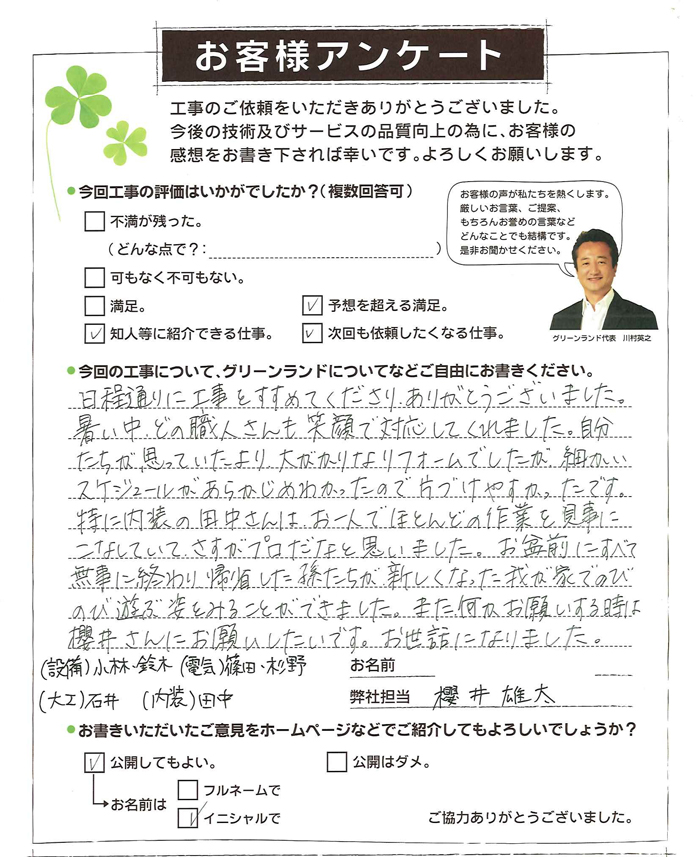 お客様アンケート
工事のご依頼をいただきありがとうございました。
今後の技術及びサービスの品質向上の為に、お客様の
感想をお書き下されば幸いです。よろしくお願いします。
●今回工事の評価はいかがでしたか？（複数回答可）
お客様の声が私たちを熱くします。
厳しいお言葉、ご提案、
もちろんお誉めの言葉など
どんなことでも結構です。
是非お聞かせください。
グリーンランド代表 川村英之
不満が残った。
（どんな点で？：　）
可もなく不可もない。
満足。 ✓予想を超える満足。
✓知人等に紹介できる仕事。 ✓次回も依頼したくなる仕事。
●今回の工事について、グリーンランドについてなどご自由にお書きください。
日程通りに工事をすすめてくださり、ありがとうございました。
暑い中、どの職人さんも笑顔で対応してくれました。自分
たちが思っていたより大がかりなリフォームでしたが、細かい
スケジュールがあらかじめわかったので片づけやすかったです。
特に内装の田中さんは、お一人でほとんどの作業を見事に
こなしていて、さすがプロだなと思いました。お盆前にすべて
無事に終わり、帰省した孫たちが新しくなった我が家でのび
のび遊ぶ姿をみることができました。また何かお願いする時は
櫻井さんにお願いしたいです。お世話になりました。
(設備)小林・鈴木 (電気)篠田・杉野 お名前
(大工)石井 (内装)田中 弊社担当 櫻井雄太
●お書きいただいたご意見をホームページなどでご紹介してもよろしいでしょうか？
✓公開してもよい。 公開はダメ。
お名前は フルネームで
✓イニシャルで
ご協力ありがとうございました。